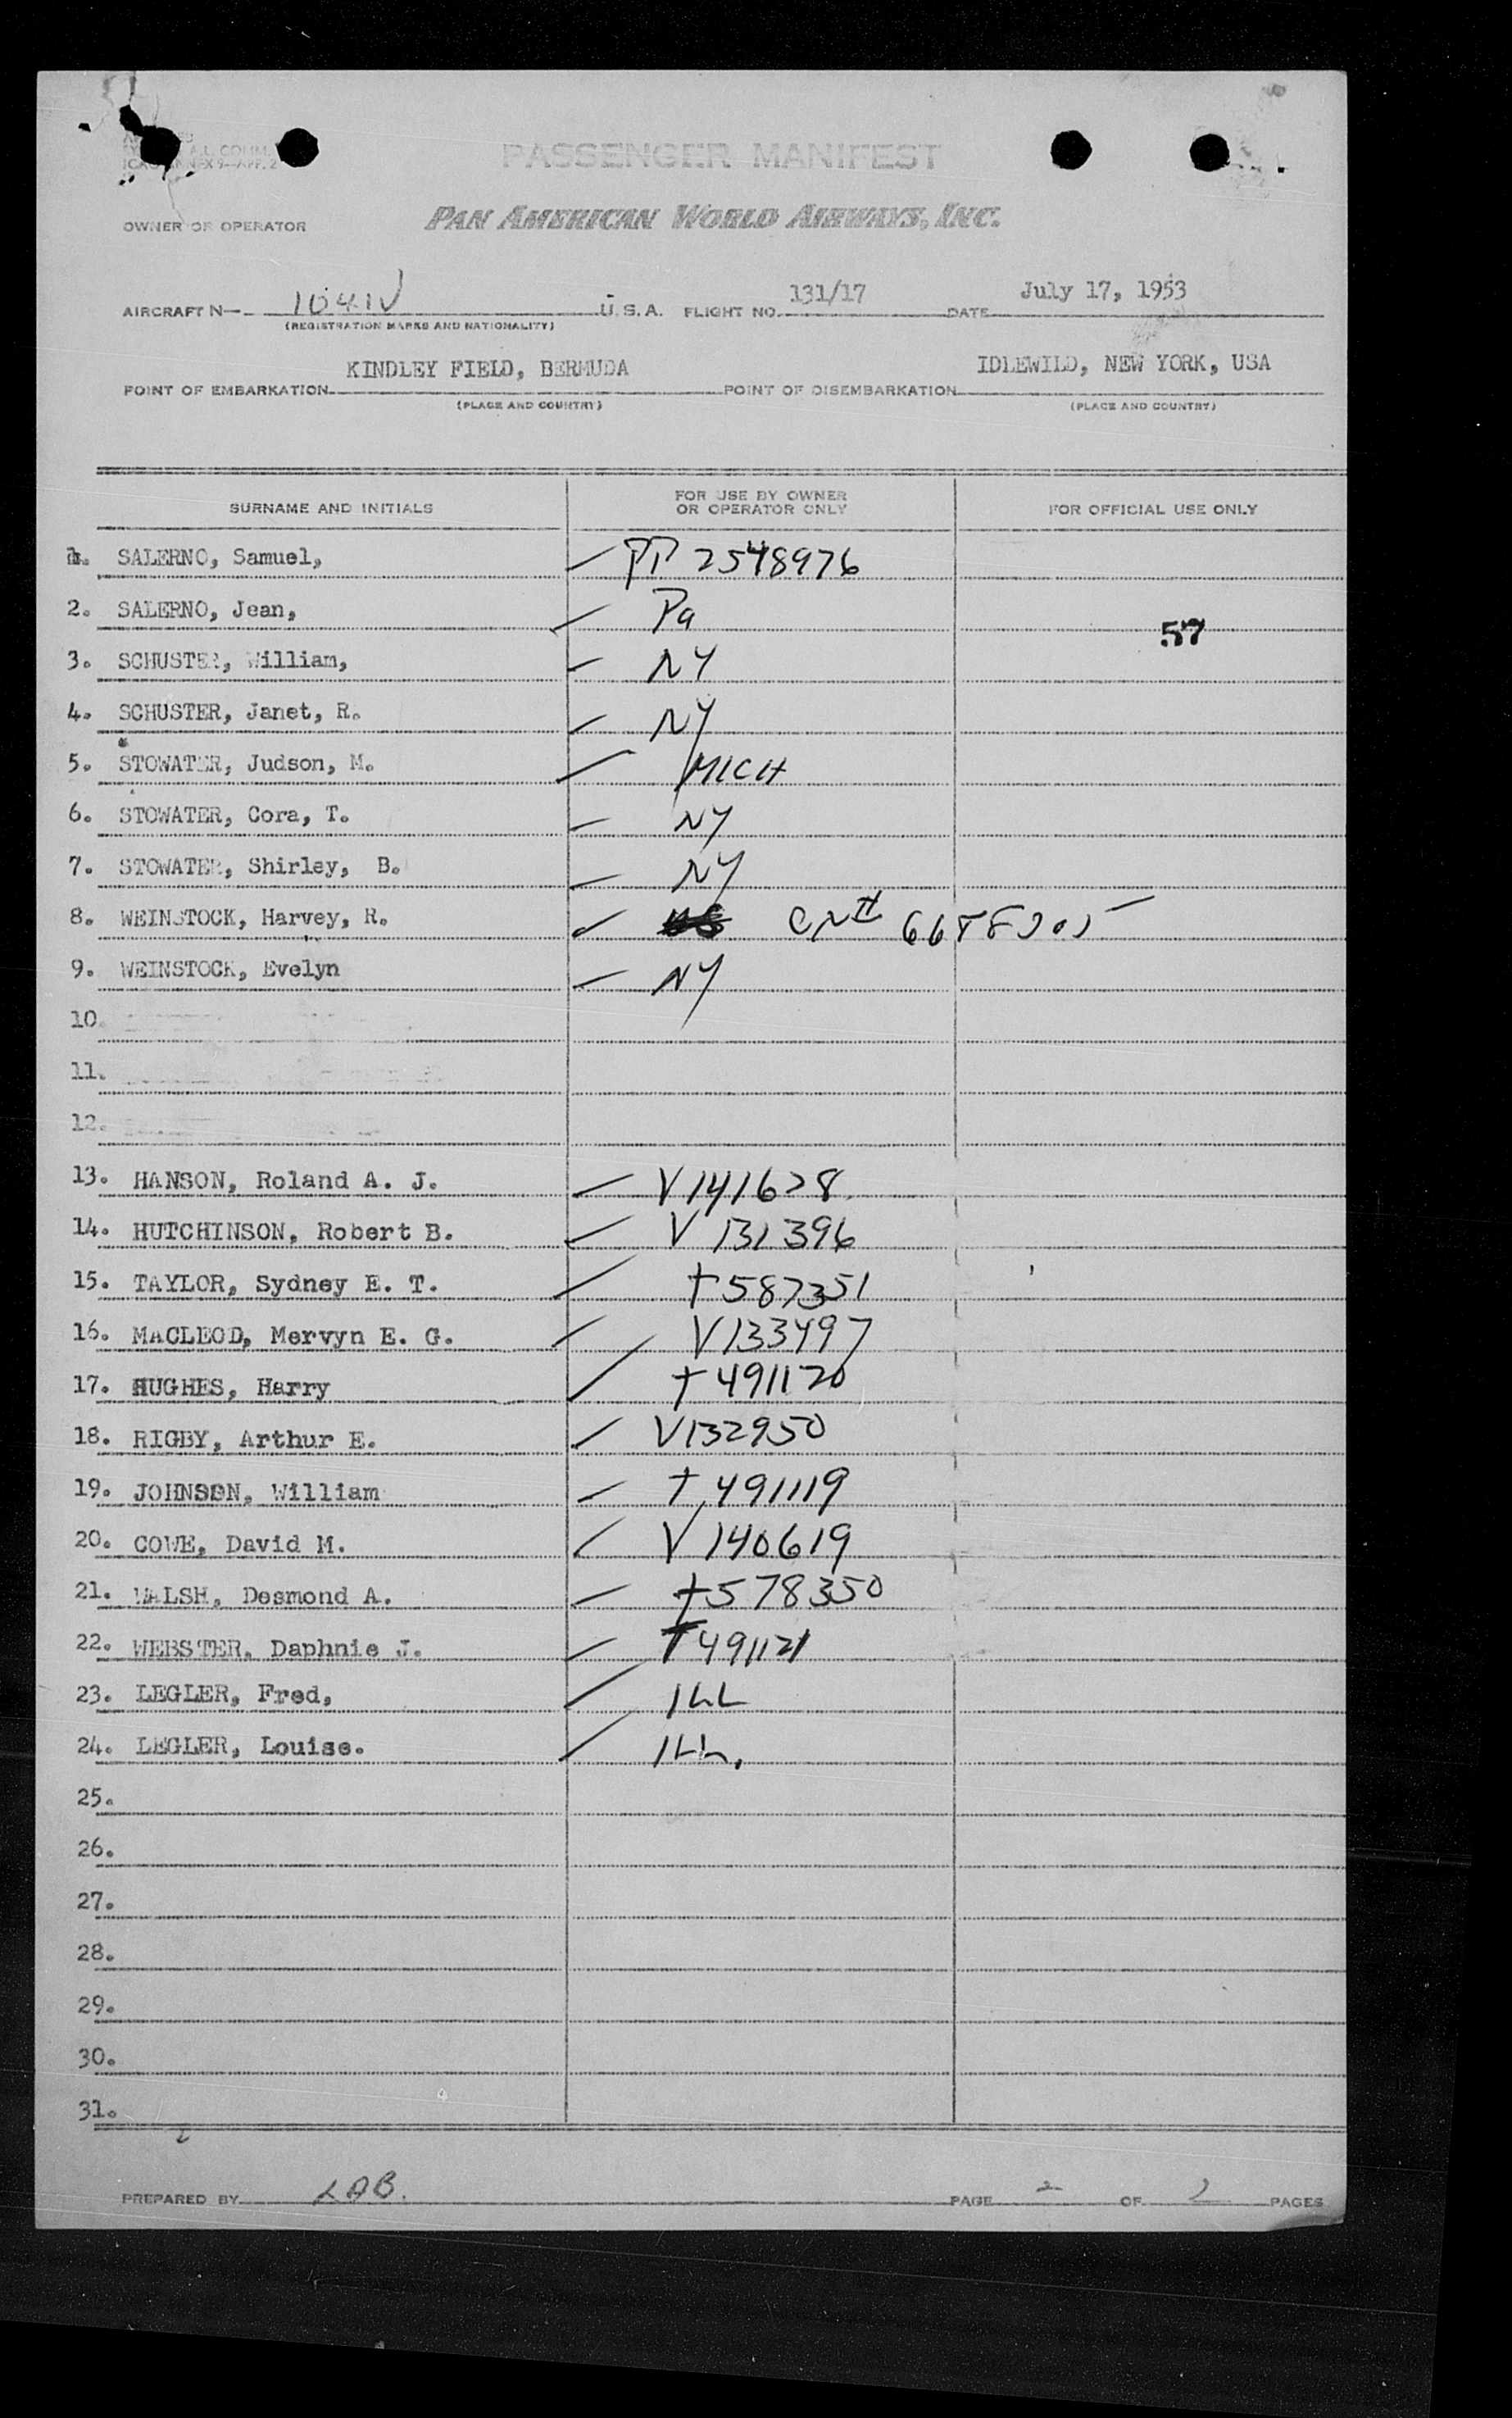 PASSENGER MANIFEST
OWNER OR OPERATOR PAN AMERICAN WORLD AIRWAYS, INC.
AIRCRAFT N— 1041V U.S.A. FLIGHT NO. 131/17 DATE July 17, 1953
(REGISTRATION MARKS AND NATIONALITY)
POINT OF EMBARKATION KINDLEY FIELD, BERMUDA POINT OF DISEMBARKATION IDLEWILD, NEW YORK, USA
(PLACE AND COUNTRY) (PLACE AND COUNTRY)
SURNAME AND INITIALS FOR USE BY OWNER OR OPERATOR ONLY FOR OFFICIAL USE ONLY
1. SALERNO, Samuel, PP 2548976
2. SALERNO, Jean, Pa
57
3. SCHUSTER, William, NY
4. SCHUSTER, Janet, R. NY
5. STOWATER, Judson, M. MICH
6. STOWATER, Cora, T. NY
7. STOWATER, Shirley, B. NY
8. WEINSTOCK, Harvey, R. CN#
9. WEINSTOCK, Evelyn NY
10.
11.
12.
13. HANSON, Roland A. J. V141628
14. HUTCHINSON, Robert B. V 131396
15. TAYLOR, Sydney E. T. T587351
16. MACLEOD, Mervyn E. G. V133497
17. HUGHES, Harry T491120
18. RIGBY, Arthur E. V132950
19. JOHNSON, William T491119
20. COWE, David M. V140619
21. WALSH, Desmond A. T578350
22. WEBSTER, Daphnie J. T491121
23. LEGLER, Fred, ILL
24. LEGLER, Louise. ILL.
25.
26.
27.
28.
29.
30.
31.
PREPARED BY LAB. PAGE 2 OF 2 PAGES